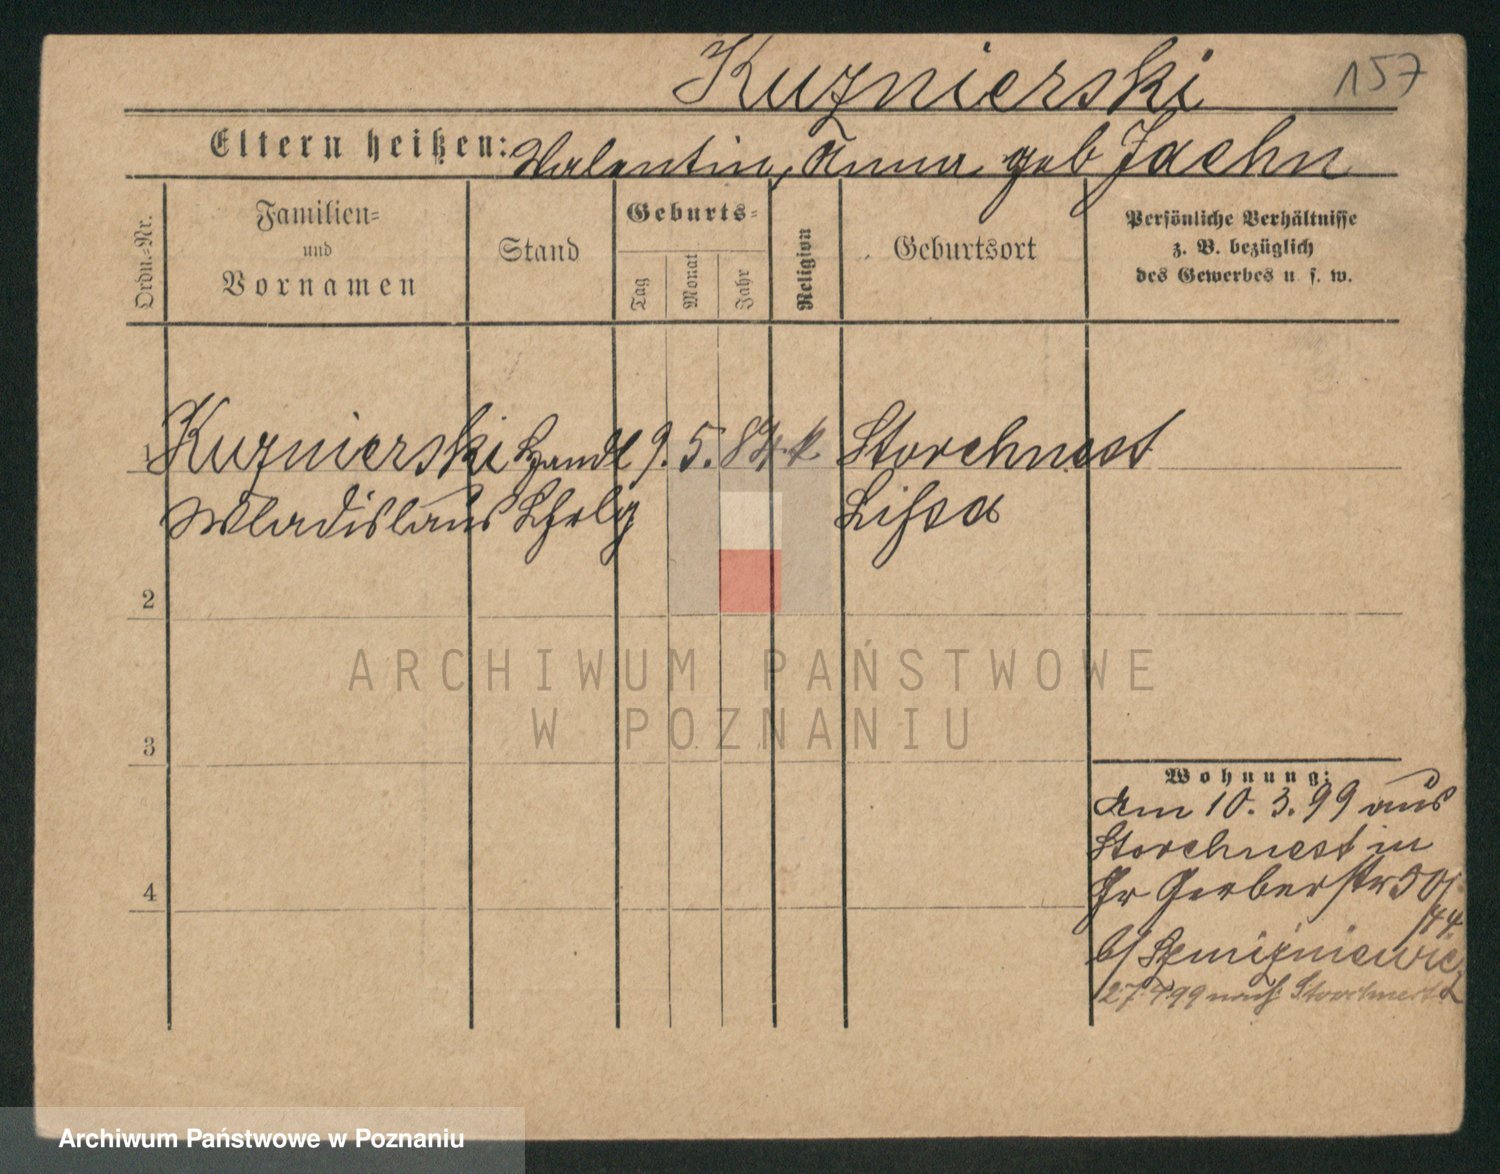 Kuznierski
157
Eltern heißen: Valentin, Anna geb Jaehn
Ordn.-Nr.
Familien-
und
Vornamen
Stand
Geburts-
Tag
Monat
Jahr
Religion
Geburtsort
Persönliche Verhältnisse
z. B. bezüglich
des Gewerbes u. s. w.
1 Kuznierski Handl 9. 5. 84. k. Storchnest
Wladislaus Lhrlg Lissa
2
3
4
Wohnung:
Am 10.3.99 aus
Storchnest in
Gr Gerberstr 50/
44.
b/
27 99 nach Storchnest
ARCHIWUM PAŃSTWOWE
W POZNANIU
Archiwum Państwowe w Poznaniu